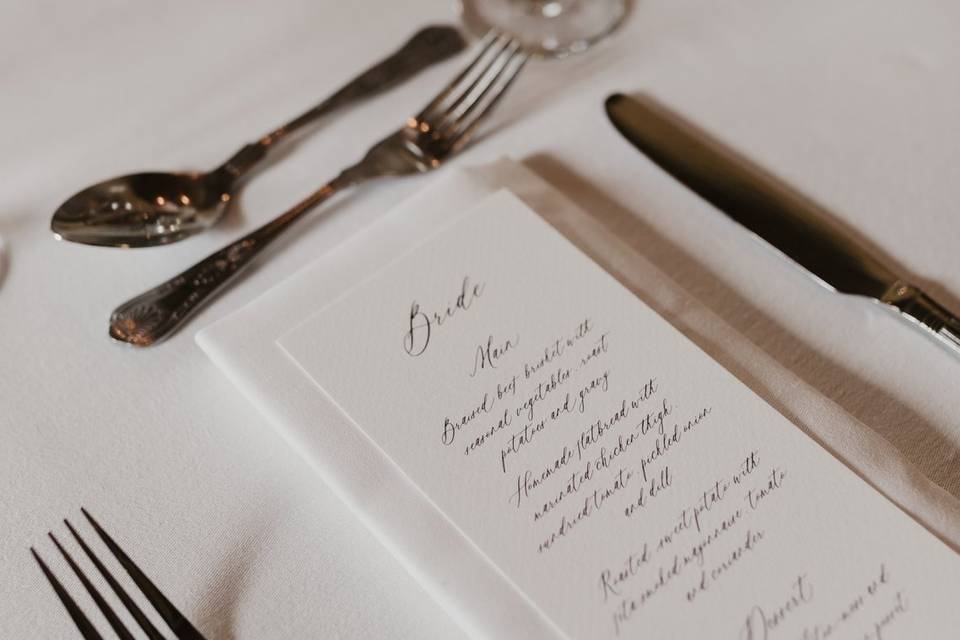 Bride
Main
Braised beef brisket with
seasonal vegetables, roast
potatoes and gravy
Homemade flatbread with
marinated chicken thigh,
sundried tomato, pickled onion
and dill
Roasted sweet potato with
smoked mayonnaise, tomato
and coriander
Dessert
and